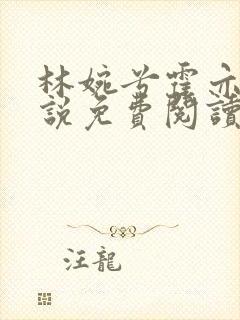 林婉兮霍亦
說免費閱讀
汪龍